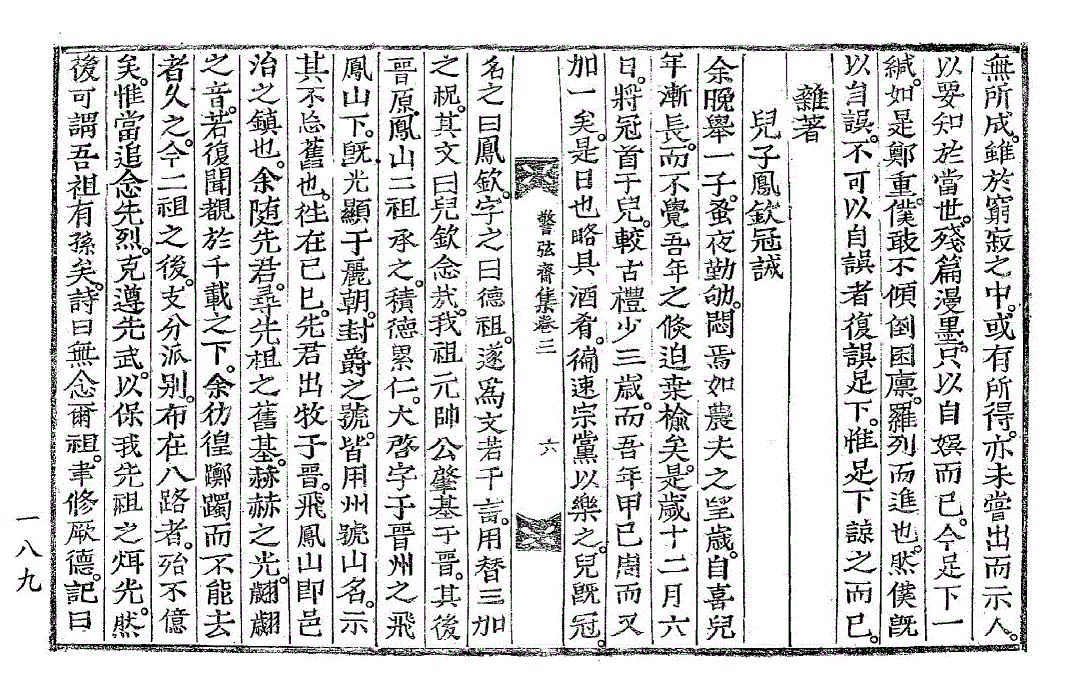 無所成。雖於窮寂之中。或有所得。亦未嘗出而示人。
以要知於當世。殘篇漫墨。只以自娛而已。今足下一
緘。如是鄭重。僕敢不傾倒囷廩。羅列而進也。然僕旣
以自誤。不可以自誤者復誤足下。惟足下諒之而已。
雜著
兒子鳳欽冠誡
余晚擧一子。蚤夜勤劬。悶焉如農夫之望歲。自喜兒
年漸長。而不覺吾年之倏迫桑楡矣。是歲十二月六
日。將冠首于兒。較古禮少三歲。而吾年甲已周而又
加一矣。是日也略具酒肴。徧速宗黨以樂之。兒旣冠。
警弦齋集卷三
六
名之曰鳳欽。字之曰德祖。遂爲文若干言。用替三加
之祝。其文曰兒欽念哉。我祖元帥公肇基于晉。其後
晉原鳳山二祖承之。積德累仁。大啓宇于晉州之飛
鳳山下。旣光顯于麗朝。封爵之號。皆用州號山名。示
其不忘舊也。徃在已巳。先君出牧于晉。飛鳳山卽邑
治之鎭也。余隨先君。尋先祖之舊基。赫赫之光。翽翽
之音。若復聞覩於千載之下。余彷徨躑躅而不能去
者久之。今二祖之後。支分派別。布在八路者。殆不億
矣。惟當追念先烈。克遵先武。以保我先祖之烱光。然
後可謂吾祖有孫矣。詩曰無念爾祖。聿修厥德。記曰
一八九